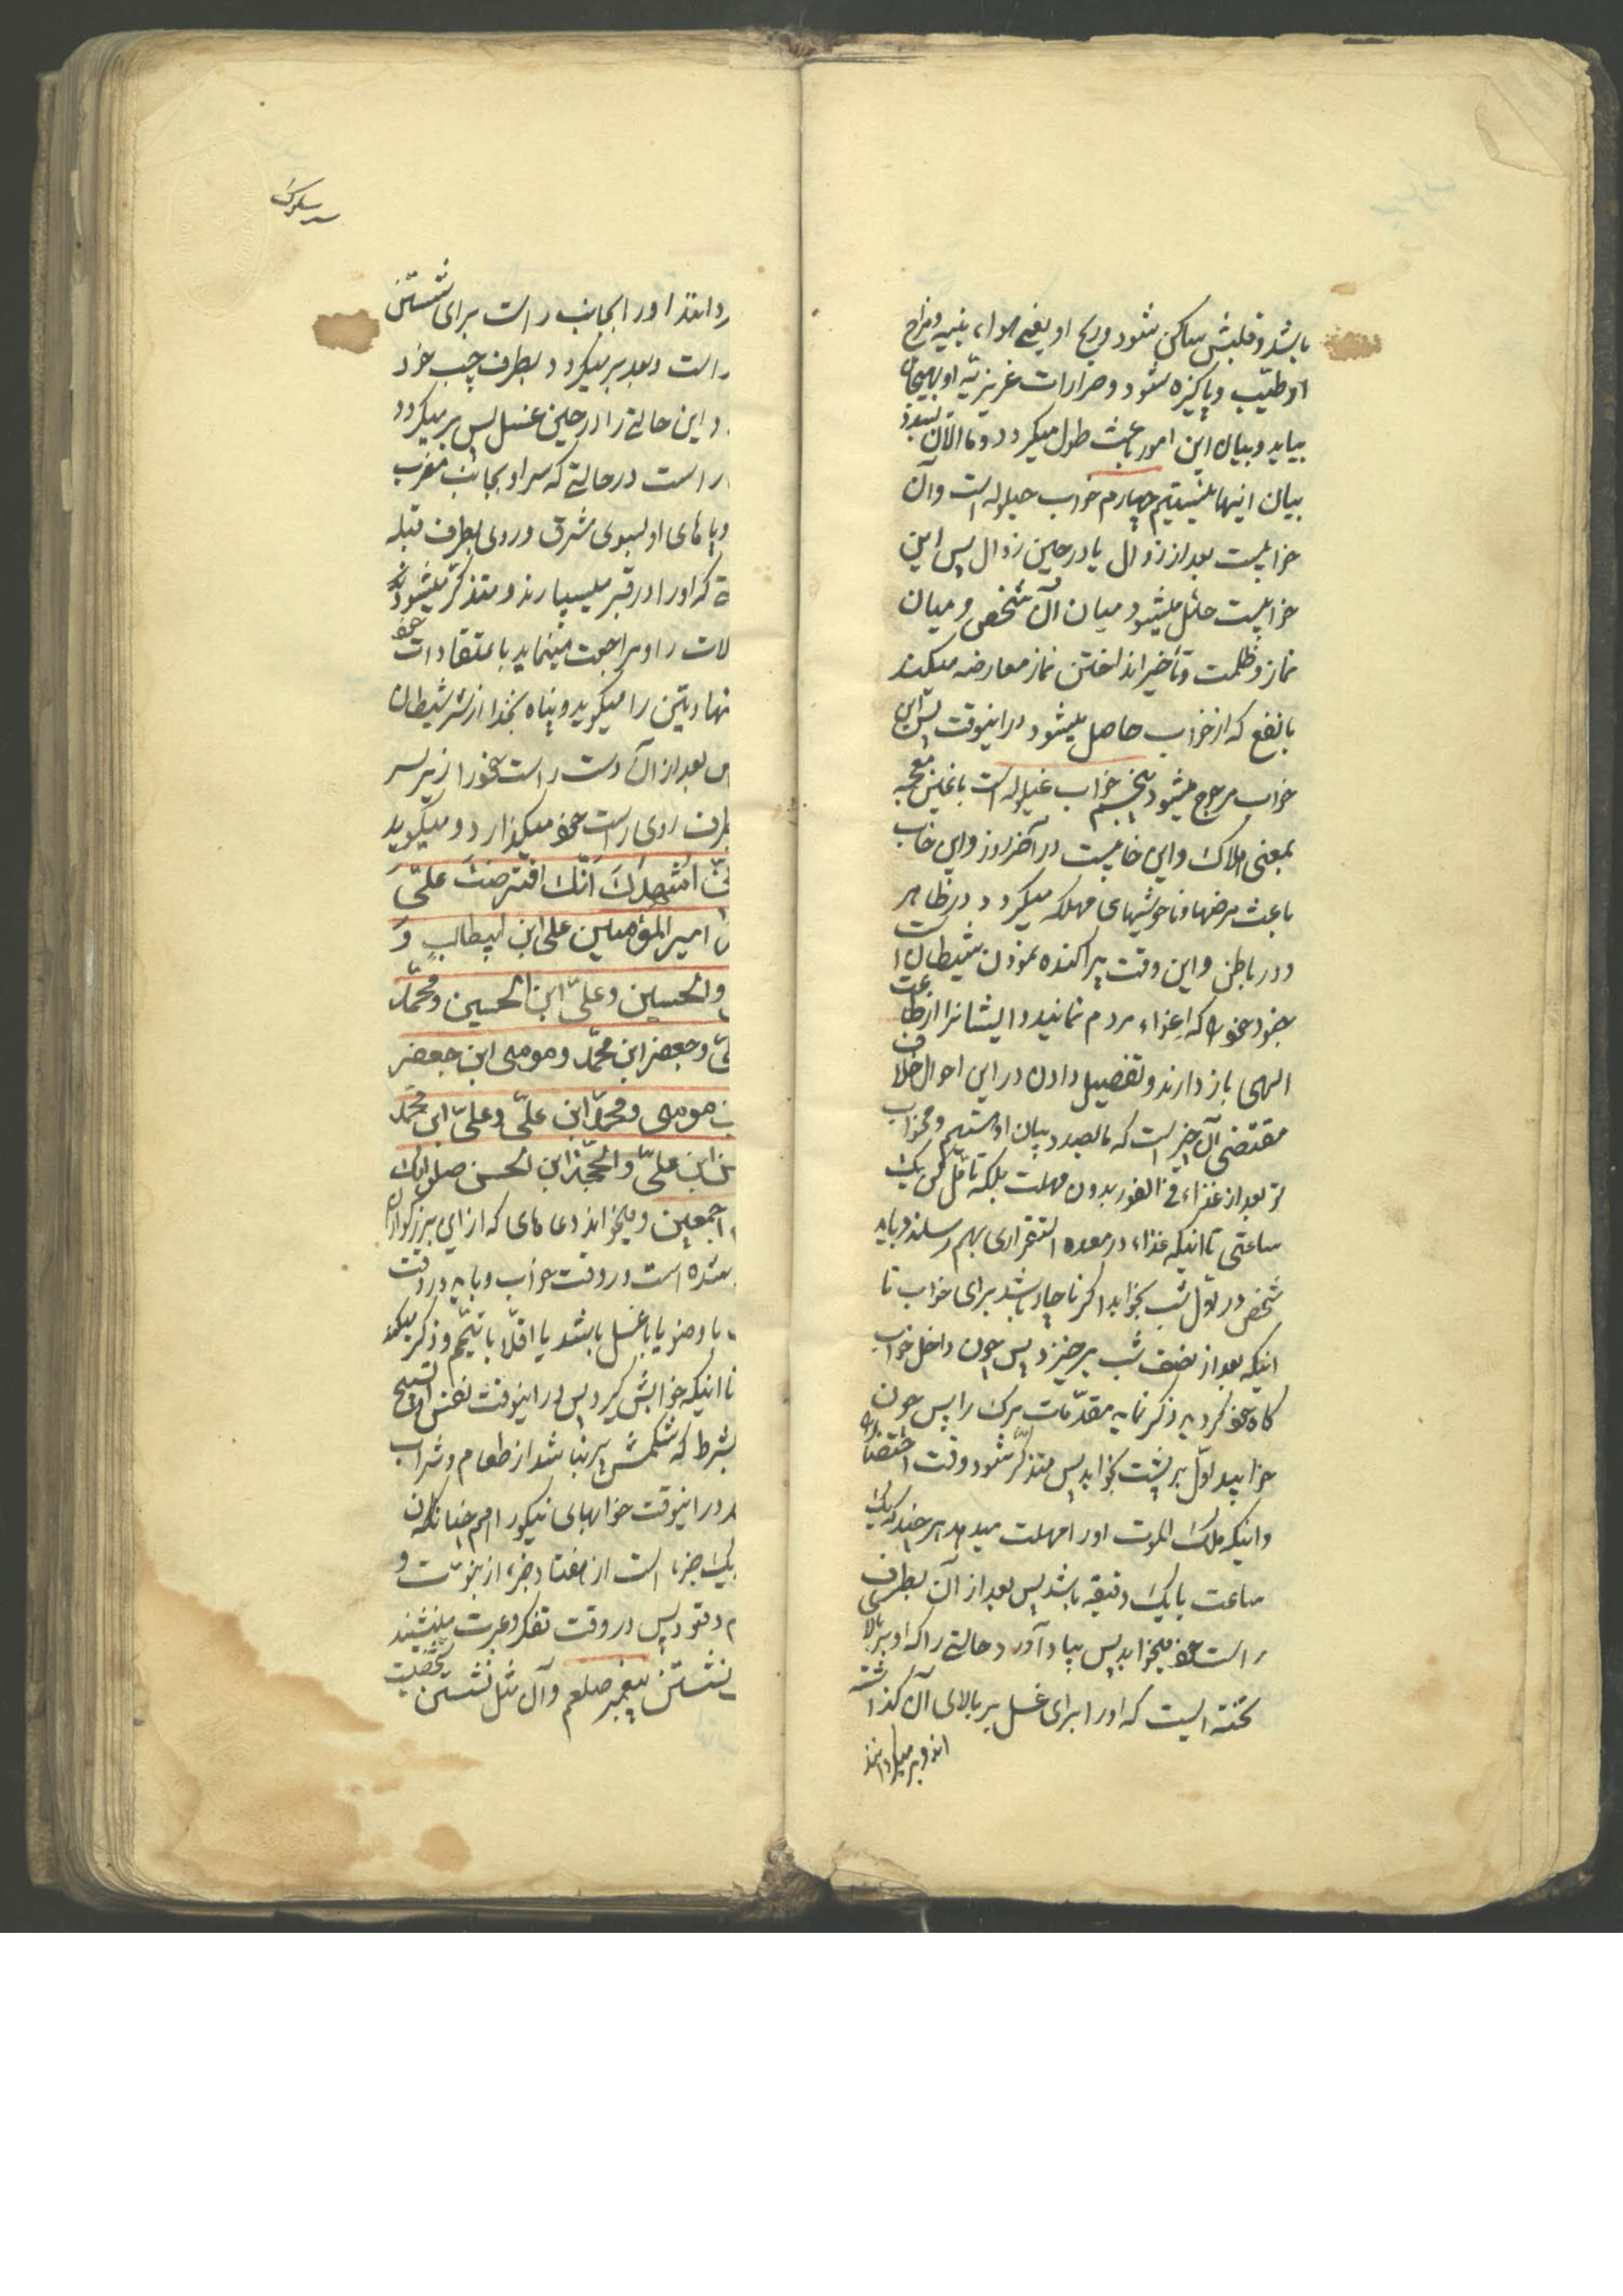 باشد و قلبش ساکن شود و ریح او یعنی هواء بنیه و مزاج
او طیّب و پاکیزه شود و حرارات غریزیّه او بهیجان
بیاید و بیان این امور باعث طول میکردد و ما الآن بصدد
بیان اینها نیستیم چهارم خواب حیلوله است و آن
خوابیست بعد از زوال یا در حین زوال پس این
خوابیست حائل میشود میان آن شخص و میان
نماز و ظلمت و تأخیر انداختن نماز معارضه میکند
با نفع که از خواب حاصل میشود در اینوقت پس این
خواب مرجوح میشود پنجم خواب غیلوله است با غین معجمه
بمعنی هلاک و این خابیست در آخر روز و این خاب
باعث مرضها و ناخوشیهای مهلکه میکردد در ظاهر
و در باطن و این وقت پراکنده نمودن شیطان است
جنود خود را که اغواء مردم نمانید و ایشانرا از طاعت
الهی باز دارند و تفصیل دادن در این احوال خلاف
مقتضی آن چیز است که ما بصدد بیان او هستیم و مخواب
تو بعد از غذاء فی الفور بدون مهلت بلکه تأمّل کن یک
ساعتی تا اینکه غذاء در معده استقراری بهم رساند و باید
شخص در اوّل شب بخوابد اکر ناچار باشد برای خواب تا
اینکه بعد از نصف شب برخیزد پس چون داخل خواب
کاه خود کردید ذکر نماید مقدّمات مرک را پس چون
خوابید اوّل بر پشت بخوابد پس متذکّر شود وقت احتضار را
و اینکه ملک الموت او را مهلت میدهد هر چند که یک
ساعت یا یک دقیقه باشد پس بعد از آن بطرف
راست خود میخوابد پس بیاد آورد حالتی را که او بر بالا
تخته ایست که او را برای غسل بر بالای آن کذاشته
اند و بر میکردانند
سیر سلوک
ردانند او را بجانب راست برای شستن
راست و بعد بر میکردد بطرف چپ خود
د این حالتی را در حین غسل پس بر میکردد
راست در حالتی که سر او بجانب مغرب
و پاهای او بسوی شرق و روی بطرف قبله
که او را در قبر میسپارند و متذکّر میشود
لات را و مراجعت مینماید باعتقادات خود
شهادتین را میکوید و پناه بخدا از شر شیطان
س بعد از آن دست راست خود را زیر سر
طرف روی راست خود میکذارد و میکوید
اشهدک انّک افترضت علیّ
امیر المؤمنین علی ابن ابیطالبٍ وَ
والحسین و علیّ ابن الحسین و محمّد
لیّ و جعفر ابن محمّد و موسی ابن جعفر
بن موسی و محمّد ابن علیّ و علیّ ابن محمّد
ن ابن علیّ والحجّة ابن الحسن صلواتک
اجمعین و میخواند دعاهای که از این بزرکواران
شده است در وقت خواب و باید در وقت
با وضو یا با غسل باشد یا اقلّا با تیمّم و ذکر میکند
تا اینکه خوابش کیرد پس در اینوقت نفس او تسبیح
بشرط که شکمش پر نباشد از طعام و شراب
در اینوقت خوابهای نیکو را هم چنانکه
یک جزء است از هفتاد جزء از نبوّت و
م و قعود پس در وقت تفکر و عبرت مینشیند
نشستن پیغمبر صلعم و آن مثل نشستن